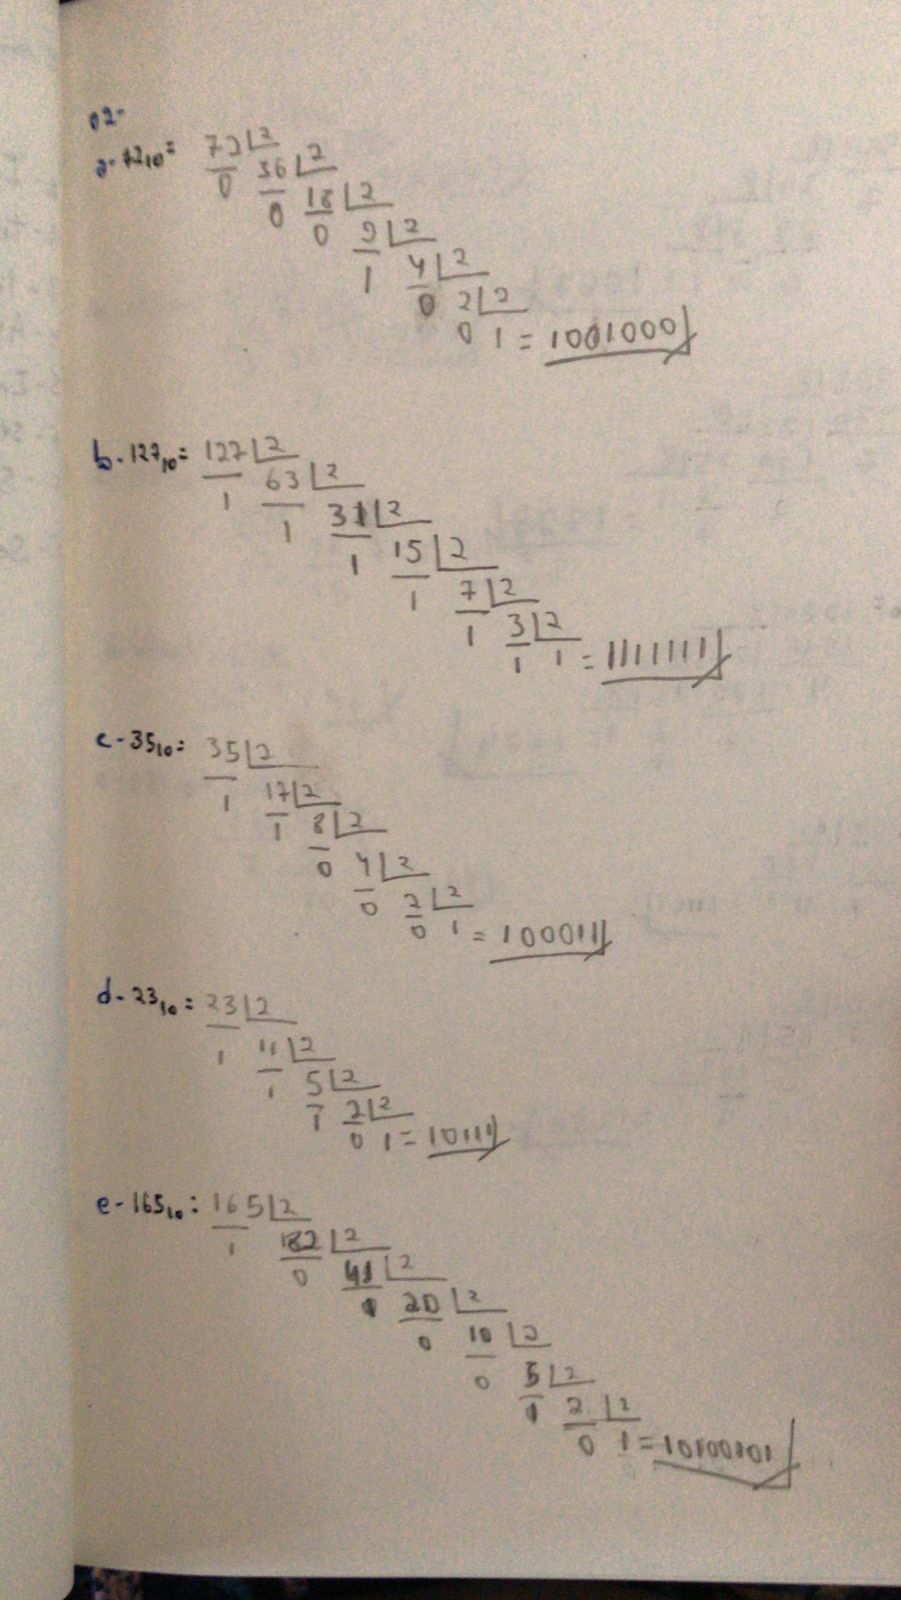 02-
a- 72₁₀= 72 2
0 36 2
0 18 2
0 9 2
1 4 2
0 2 2
0 1 = 1001000
b- 127₁₀= 127 2
1 63 2
1 31 2
1 15 2
1 7 2
1 3 2
1 1 = 1111111
c- 35₁₀= 35 2
1 17 2
1 8 2
0 4 2
0 2 2
0 1 = 100011
d- 23₁₀= 23 2
1 11 2
1 5 2
1 2 2
0 1 = 10111
e- 165₁₀: 165 2
1 82 2
0 41 2
1 20 2
0 10 2
0 5 2
1 2 2
0 1 = 10100101